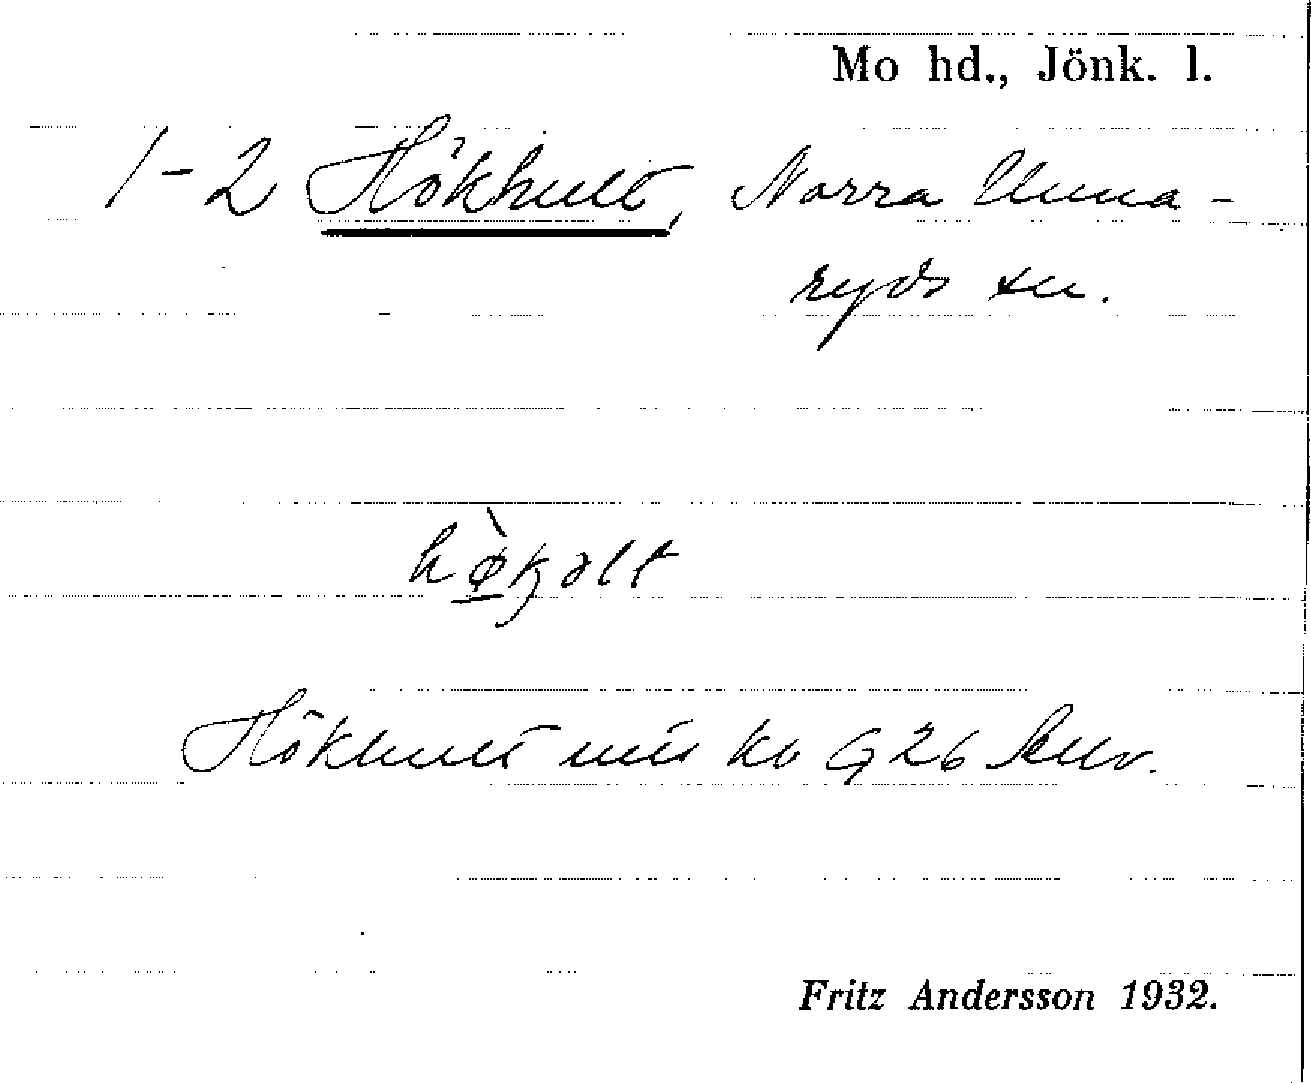 Mo hd., Jönk. l.
1-2 Hökhult, Norra Unna-
ryds sn.
hø̀kəlt
Hökhult
Fritz Andersson 1932.